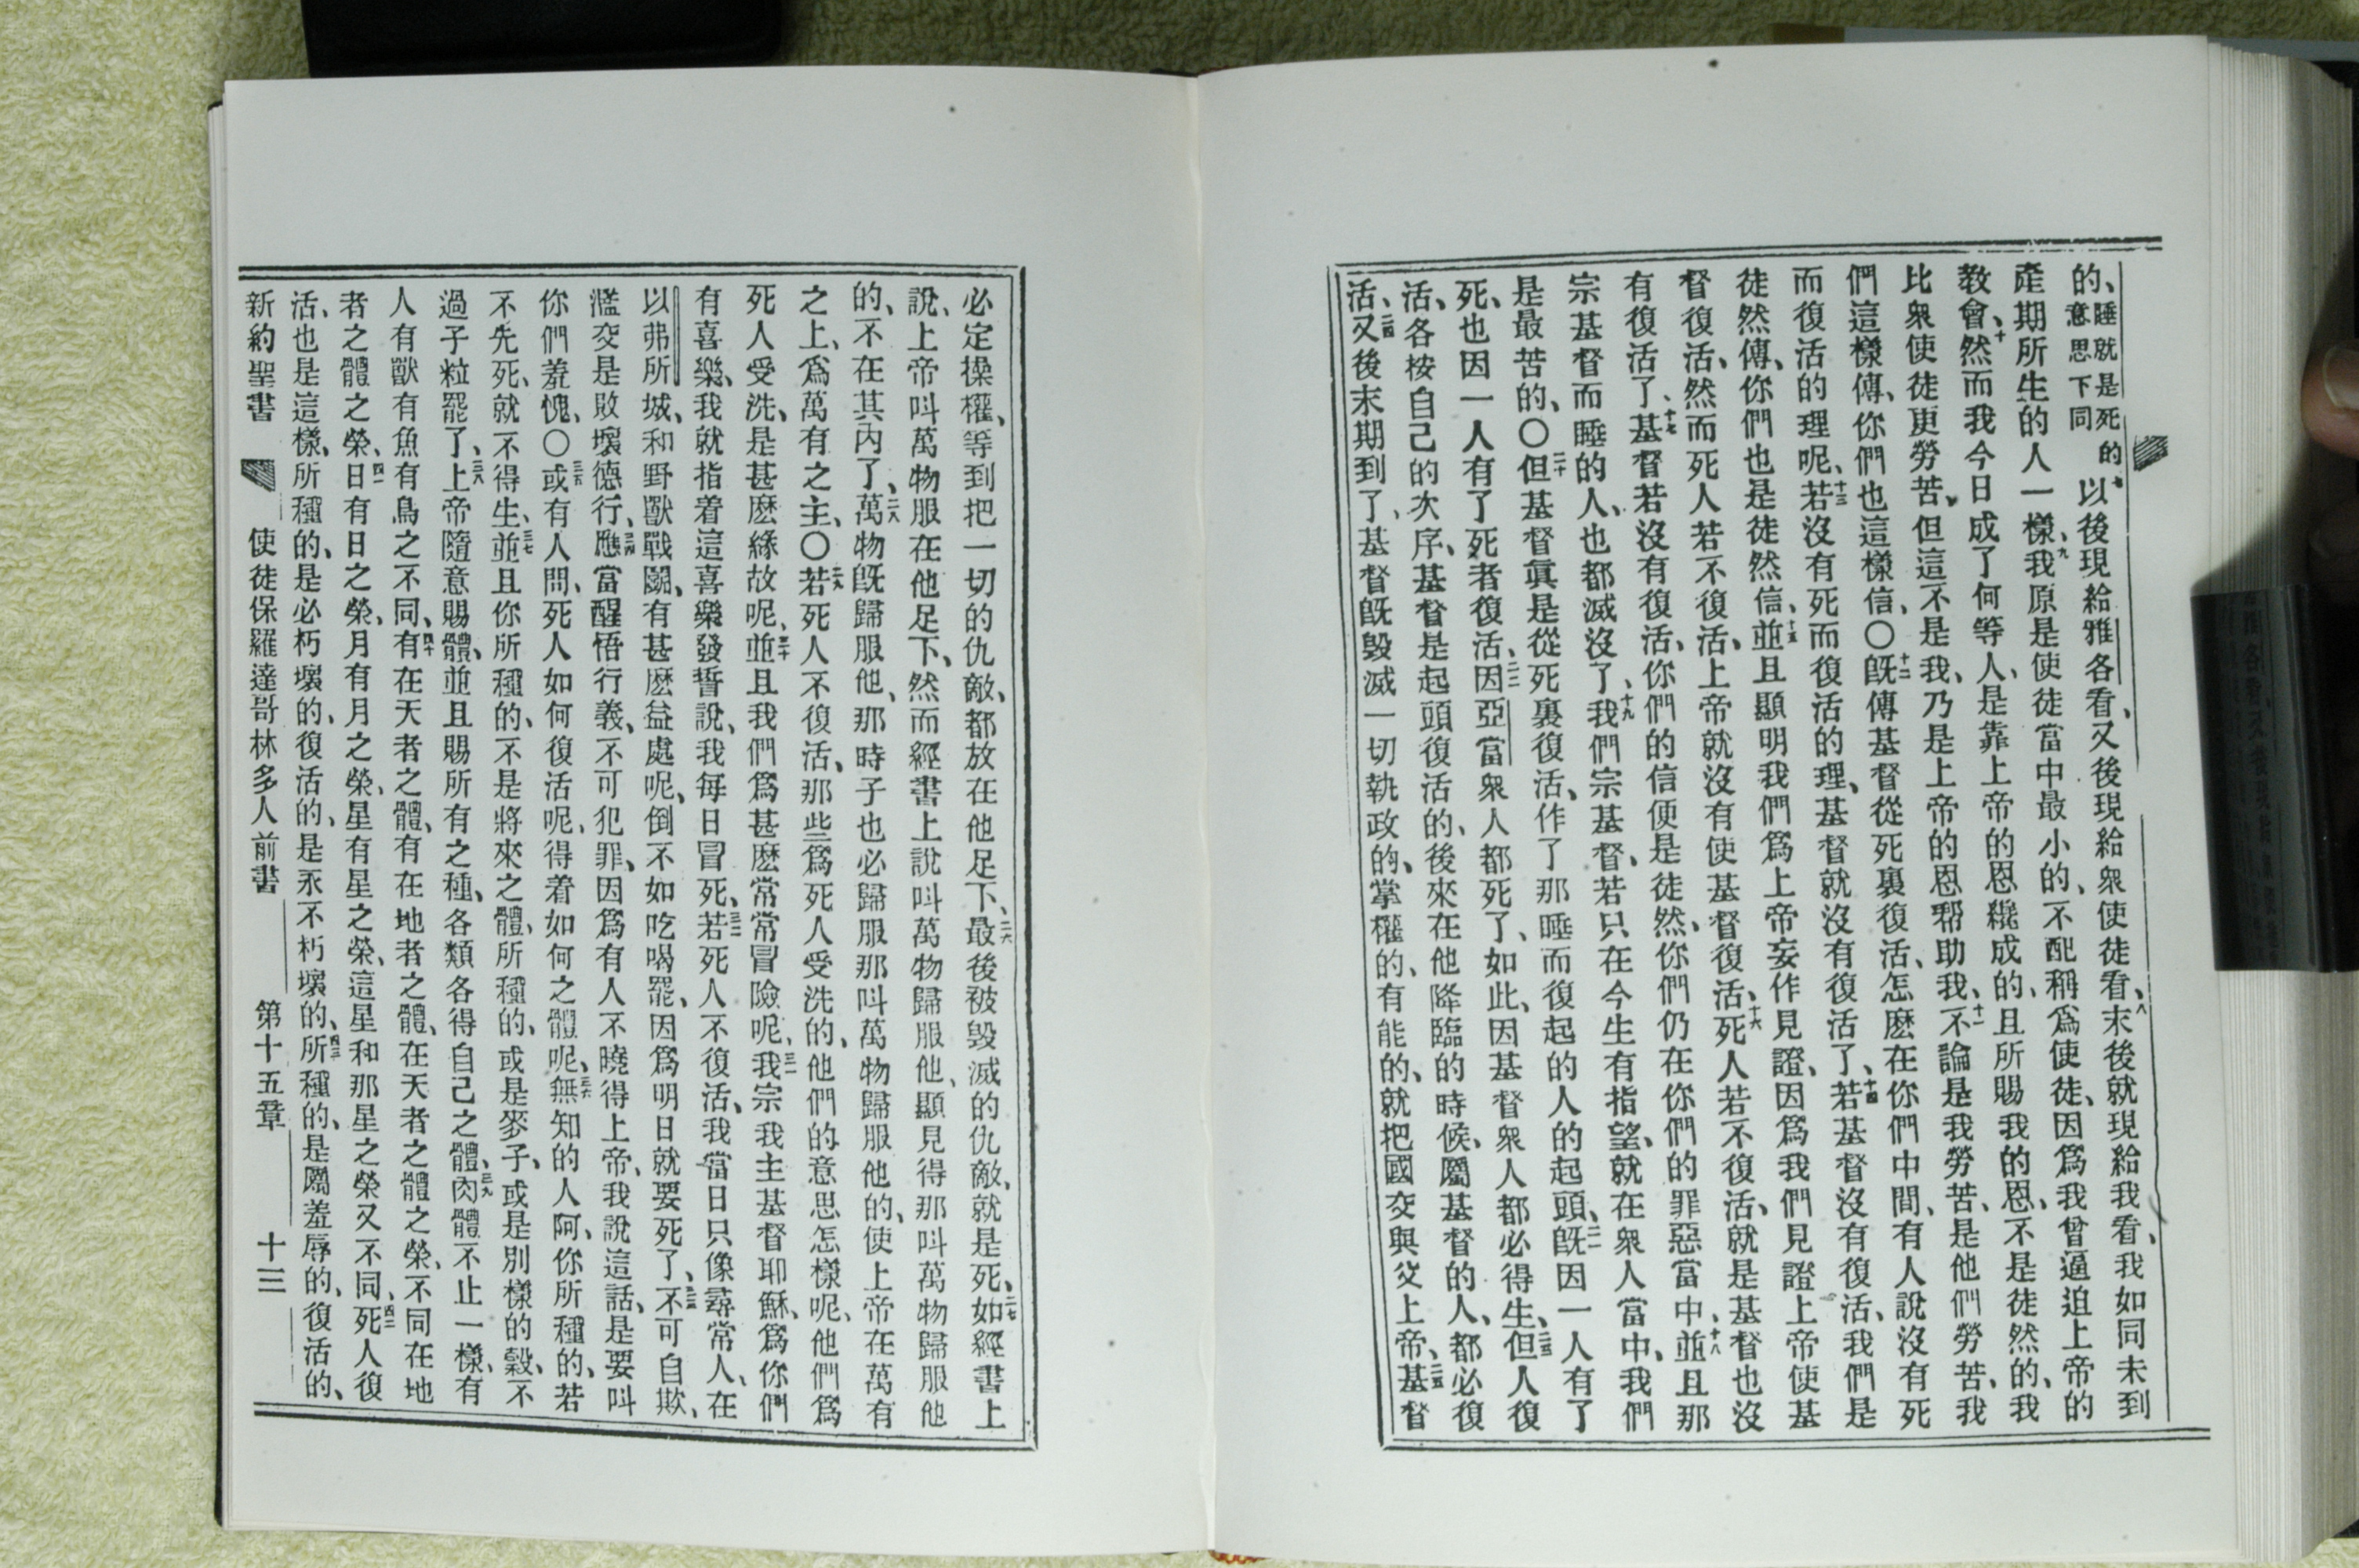 的、睡就是死的意思下同七以後現給雅各看、又後現給衆使徒看、八末後就現給我看、我如同未到
產期所生的人一樣、九我原是使徒當中最小的、不配稱爲使徒、因爲我曾逼迫上帝的
教會、十然而我今日成了何等人、是靠上帝的恩纔成的、且所賜我的恩、不是徒然的、我
比衆使徒更勞苦、但這不是我、乃是上帝的恩帮助我、十一不論是我勞苦、是他們勞苦、我
們這樣傳、你們也這樣信、〇十二旣傳基督從死裏復活、怎麽在你們中間、有人說沒有死
而復活的理呢、十三若沒有死而復活的理、基督就沒有復活了、十四若基督沒有復活、我們是
徒然傳、你們也是徒然信、十五並且顯明我們爲上帝妄作見證、因爲我們見證上帝使基
督復活、然而死人若不復活、上帝就沒有使基督復活、十六死人若不復活、就是基督也沒
有復活了、十七基督若沒有復活、你們的信便是徒然、你們仍在你們的罪惡當中、十八並且那
宗基督而睡的人、也都滅沒了、十九我們宗基督、若只在今生有指望、就在衆人當中、我們
是最苦的、〇二十但基督眞是從死裏復活、作了那睡而復起的人的起頭、二一旣因一人有了
死、也因一人有了死者復活、二二因亞當衆人都死了、如此、因基督衆人都必得生、二三但人復
活、各按自己的次序、基督是起頭復活的、後來在他降臨的時候、屬基督的人、都必復
活、二四又後末期到了、基督旣毀滅一切執政的、掌權的、有能的、就把國交與父上帝、二五基督
必定操權、等到把一切的仇敵、都放在他足下、二六最後被毀滅的仇敵、就是死、二七如經書上
說、上帝叫萬物服在他足下、然而經書上說叫萬物歸服他、顯見得那叫萬物歸服他
的、不在其內了、二八萬物旣歸服他、那時子也必歸服那叫萬物歸服他的、使上帝在萬有
之上、爲萬有之主、〇二九若死人不復活、那些爲死人受洗的、他們的意思怎樣呢、他們爲
死人受洗、是甚麽緣故呢、三十並且我們爲甚麽常常冒險呢、三一我宗我主基督耶穌、爲你們
有喜樂、我就指着這喜樂發誓說、我每日冒死、三二若死人不復活、我當日只像尋常人、在
以弗所城、和野獸戰鬬、有甚麽益處呢、倒不如吃喝罷、因爲明日就要死了、三三不可自欺、
濫交是敗壞德行、三四應當醒悟行義、不可犯罪、因爲有人不曉得上帝、我說這話、是要叫
你們羞愧、〇三五或有人問、死人如何復活呢、得着如何之體呢、三六無知的人阿、你所種的、若
不先死、就不得生、三七並且你所種的、不是將來之體、所種的、或是麥子、或是別樣的穀、不
過子粒罷了、三八上帝隨意賜體、並且賜所有之種、各類各得自己之體、三九肉體不止一樣、有
人有獸有魚有鳥之不同、四十有在天者之體、有在地者之體、在天者之體之榮、不同在地
者之體之榮、四一日有日之榮、月有月之榮、星有星之榮、這星和那星之榮又不同、四二死人復
活、也是這樣、所種的、是必朽壞的、復活的、是永不朽壞的、四三所種的、是屬羞辱的、復活的、
新約聖書 使徒保羅達哥林多人前書 第十五章 十三